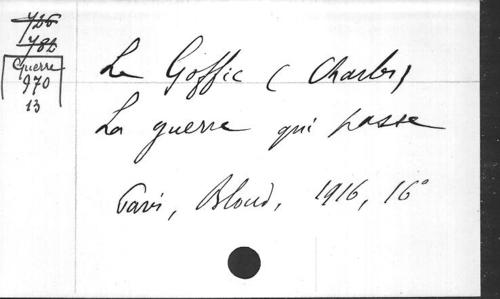 726
782
Guerre
970
13
Le Goffic (Charles)
La guerre qui passe
Paris, Bloud, 1916, 16°